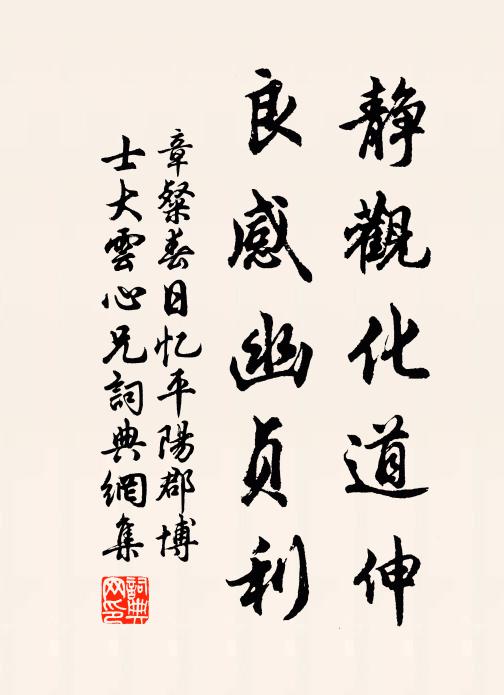 静觀化道伸
良感幽貞利
章粲春日忆平陽郡博
士大雲心兄詞典網集
詞典網印